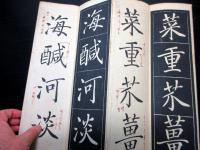 菜重芥薑
菜重芥薑
海鹹河淡
海鹹河淡